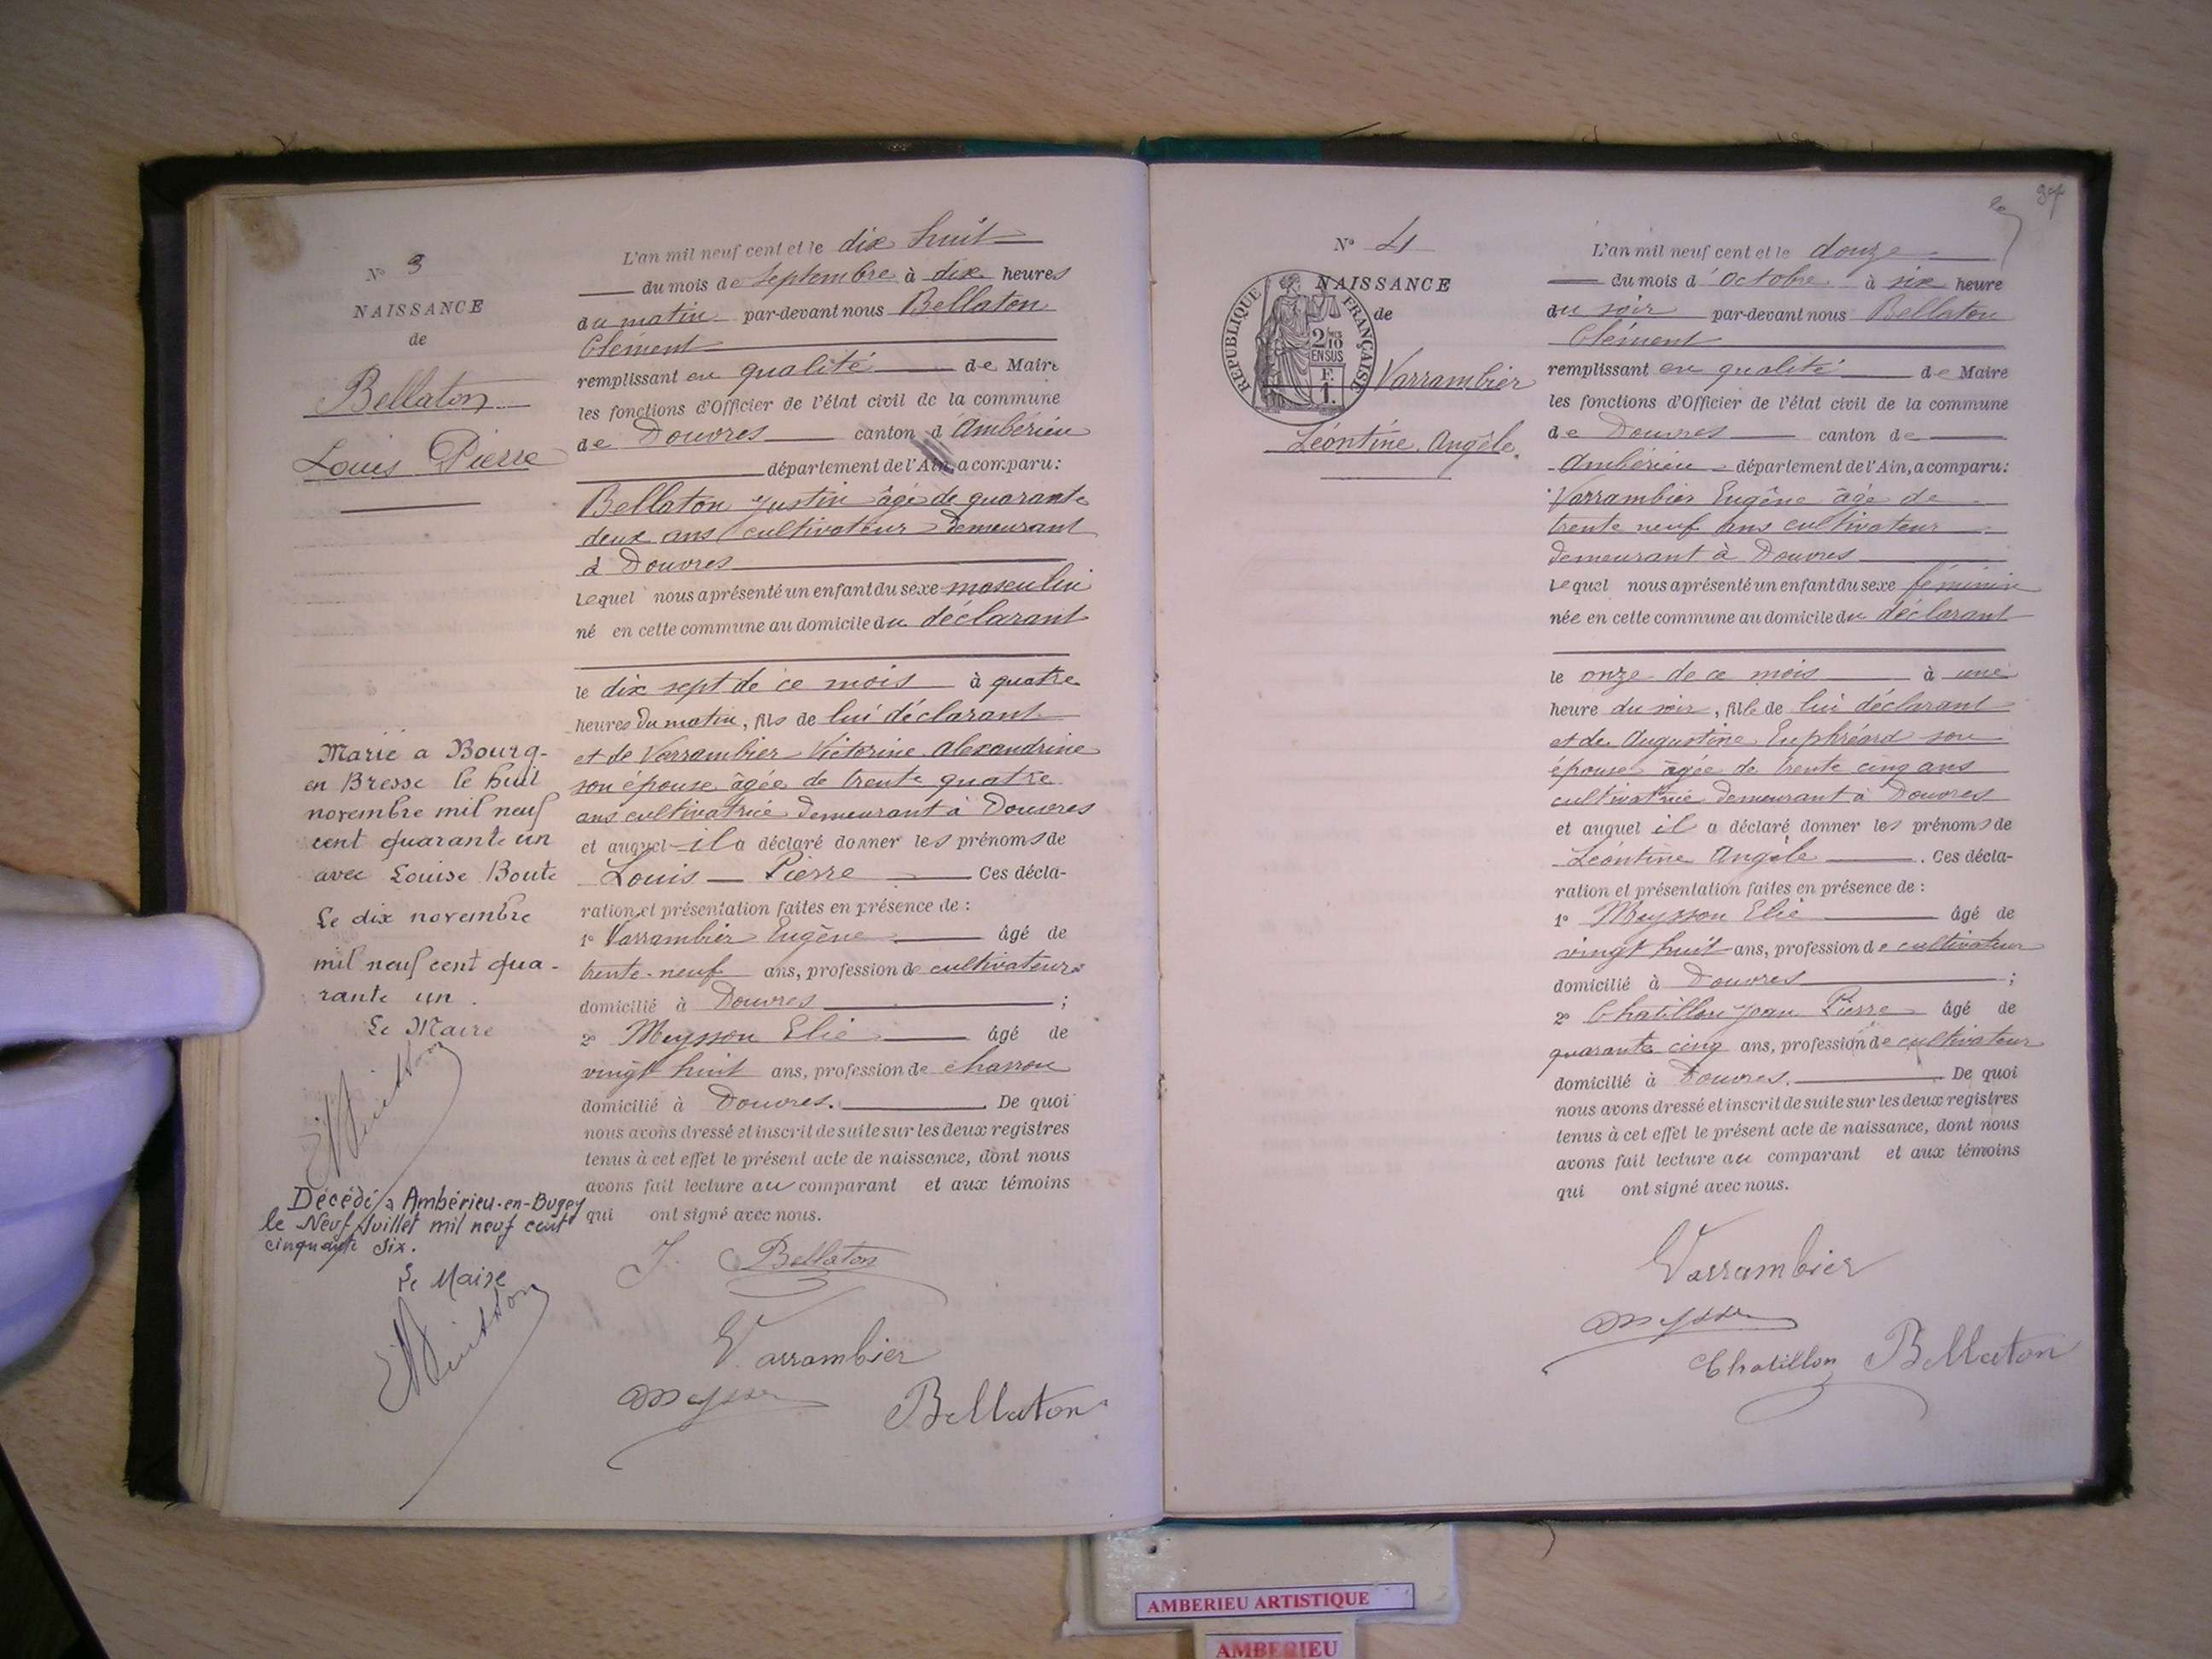 N° 3
NAISSANCE
de
Bellaton
Louis Pierre
L'an mil neuf cent et le dix huit
du mois de septembre à dix heures
du matin par-devant nous Bellaton
Clément
remplissant en qualité de Maire
les fonctions d'Officier de l'état civil de la commune
de Douvres canton d'Ambérieu
département de l'Ain, a comparu :
Bellaton Justin âgé de quarante
deux ans cultivateur demeurant
à Douvres
Lequel nous a présenté un enfant du sexe masculin
né en cette commune au domicile du déclarant
le dix sept de ce mois à quatre
heures du matin, fils de lui déclarant
et de Varrambier Victorine Alexandrine
son épouse âgée de trente quatre
ans cultivatrice demeurant à Douvres
et auquel il a déclaré donner les prénoms de
Louis Pierre Ces décla-
ration et présentation faites en présence de :
1° Varrambier Eugène âgé de
trente-neuf ans, profession de cultivateur
domicilié à Douvres ;
2° Meysson Elie âgé de
vingt huit ans, profession de charron
domicilié à Douvres. De quoi
nous avons dressé et inscrit de suite sur les deux registres
tenus à cet effet le présent acte de naissance, dont nous
avons fait lecture au comparant et aux témoins
qui ont signé avec nous.
J. Bellaton
Varrambier
Meysson
Bellaton
Marié a Bourg-
en Bresse le huit
novembre mil neuf
cent quarante un
avec Louise Boute
Le dix novembre
mil neuf cent qua-
rante un.
Le Maire
Décédé à Ambérieu-en-Bugey
le Neuf Juillet mil neuf cent
cinquante six.
Le Maire
97
N° 4
NAISSANCE
de
REPUBLIQUE FRANÇAISE
2/10
EN SUS
F.
1.
Varrambier
Léontine Angèle
L'an mil neuf cent et le douze
du mois d'octobre à six heure
du soir par-devant nous Bellaton
Clément
remplissant en qualité de Maire
les fonctions d'Officier de l'état civil de la commune
de Douvres canton de
Ambérieu département de l'Ain, a comparu :
Varrambier Eugène âgé de
trente neuf ans cultivateur
demeurant à Douvres
Lequel nous a présenté un enfant du sexe féminin
née en cette commune au domicile du déclarant
le onze de ce mois à une
heure du soir, fille de lui déclarant
et de Augustine Euphréard son
épouse âgée de trente cinq ans
cultivatrice demeurant à Douvres
et auquel il a déclaré donner les prénoms de
Léontine Angèle. Ces décla-
ration et présentation faites en présence de :
1° Meysson Elie âgé de
vingt huit ans, profession de cultivateur
domicilié à Douvres ;
2° Chatillon Jean Pierre âgé de
quarante cinq ans, profession de cultivateur
domicilié à Douvres. De quoi
nous avons dressé et inscrit de suite sur les deux registres
tenus à cet effet le présent acte de naissance, dont nous
avons fait lecture au comparant et aux témoins
qui ont signé avec nous.
Varrambier
Meysson
Chatillon Bellaton
AMBERIEU ARTISTIQUE
AMBERIEU